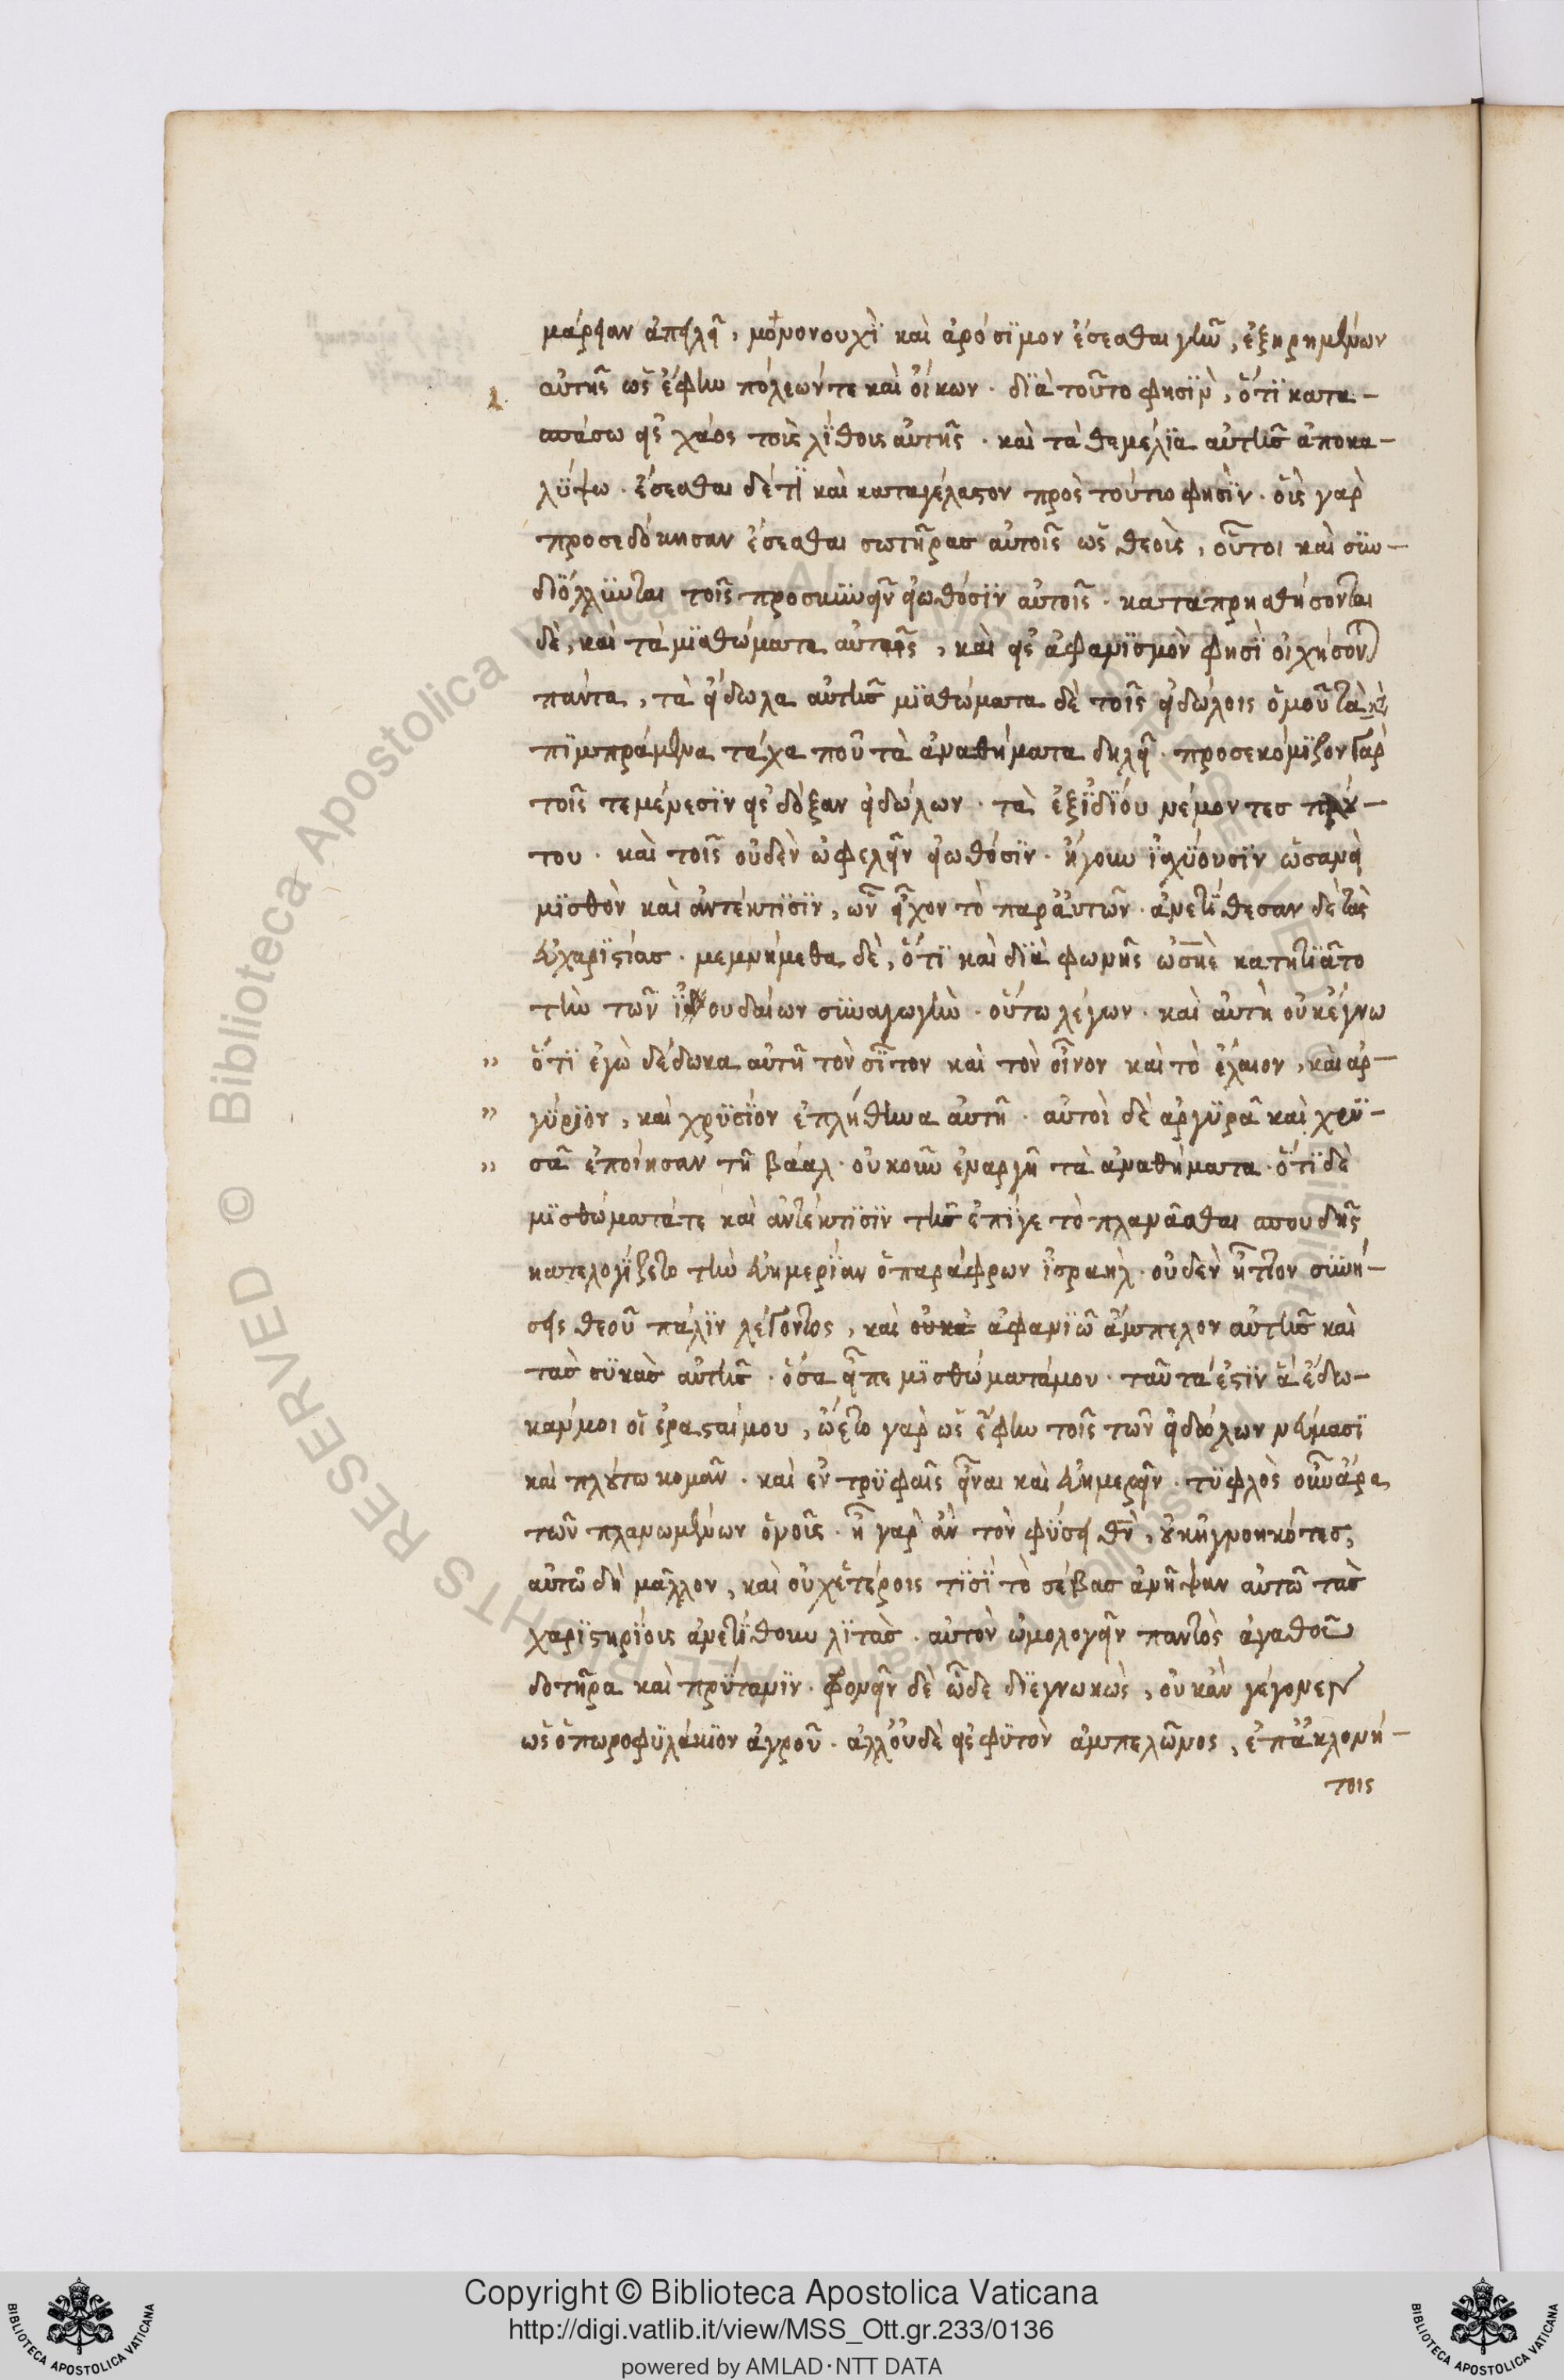 μάρειαν ἀπειλεῖ, μονονουχὶ καὶ ἀρόσϊμον ἔσεσθαι γῆν, ἐξῃρημένων
αὐτῆς ὡς ἔφην πόλεών τε καὶ οἴκων. δϊὰ τοῦτο φησϊν, ὅτϊ κατα-
σπάσω εἰς χάος τοὺς λίθους αὐτῆς. καὶ τὰ θεμέλϊα αὐτῆς ἀποκα-
λύψω. ἔσεσθαι δέ τϊ καὶ καταγέλαστον πρὸς τούτω φησϊν. οὓς γὰρ
προσεδόκησαν ἔσεσθαι σωτῆρας αὐτοῖς ὡς θεοὺς, οὗτοι καὶ συν-
διόλλυνται τοῖς προσκυνεῖν εἰωθόσϊν αὐτοῖς. καταπρησθήσονται
δὲ, καὶ τὰ μϊσθώματα αὐτῆς, καὶ εἰς ἀφανϊσμὸν φησϊ οἰχήσονται
πάντα, τὰ εἴδωλα αὐτῆς μϊσθώματα δὲ τοῖς εἰδώλοις ὁμοῦ τὰ κα
πϊμπράμενα τάχα που τὰ ἀναθήματα δηλοῖ. προσεκόμϊζον γὰρ
τοῖς τεμένεσϊν εἰς δόξαν εἰδώλων. τὰ ἐξ ἰδϊου νέμοντες πλού-
του. καὶ τοῖς οὐδὲν ὠφελεῖν εἰωθόσϊν. ἤγουν ἰσχύουσϊν ὡσανεὶ
μϊσθὸν καὶ ἀντέκτϊσϊν, ὧν εἶχον τὸ παρ' αὐτῶν. ἀνετίθεσαν δὲ τὰς
εὐχαρϊστίας. μεμνήμεθα δὲ, ὅτϊ καὶ δϊὰ φωνῆς ὠσηὲ κατητϊᾶτο
τὴν τῶν ἰουδαίων συναγωγὴν. οὕτω λέγων. καὶ αὐτὴ οὐκ ἔγνω
" ὅτϊ ἐγὼ δέδωκα αὐτῇ τὸν σῖτον καὶ τὸν οἶνον καὶ τὸ ἔλαιον, καὶ ἀρ-
" γύρϊον, καὶ χρυσϊον ἐπλήθυνα αὐτῇ. αὐτοὶ δὲ ἀργυρᾶ καὶ χρυ-
" σᾶ ἐποίησαν τῇ βάαλ. οὐκοῦν ἐναργῆ τὰ ἀναθήματα. ὅτϊ δὲ
μϊσθώματά τε καὶ ἀντέκτϊσϊν τῆς ἐπί γε τὸ πλανᾶσθαι σπουδῆς
κατελογίζετο τὴν εὐημερϊαν ὁ παράφρων ἰσραὴλ. οὐδὲν ἧττον συνή-
σεις θεοῦ πάλϊν λέγοντος, καὶ ἀφανϊῶ ἄμπελον αὐτῆς καὶ
τὰς συκὰς αὐτῆς. ὅσα εἶπε μϊσθώματά μου. ταῦτά ἐστϊν ἃ ἔδω-
κάν μοι οἱ ἐρασταί μου, ᾤετο γὰρ ὡς ἔφην τοῖς τῶν εἰδώλων νεύμασϊ
καὶ πλούτω κομᾶν. καὶ ἐν τρυφαῖς εἶναι καὶ εὐημερεῖν. τυφλὸς οὖν ἄρα
τῶν πλανωμένων ὁ νοῦς. ἦ γὰρ ἂν τὸν φύσει θν, οὐκ ἠγνοηκότες,
αὐτῶ δὴ μᾶλλον, καὶ οὐχ ἑτέροις τϊσϊ τὸ σέβας ἀνῆψαν αὐτῶ τὰς
χαρϊστηρϊους ἀνετϊθουν λϊτὰς. αὐτὸν ὡμολογεῖν παντὸς ἀγαθοῦ
δοτῆρα καὶ πρύτανϊν. φονεῖν δὲ ὧδε δϊεγνωκὼς, οὐκ ἂν γέγονεν
ὡς ὀπωροφυλάκϊον ἀγροῦ. ἀλλ' οὐδὲ εἰς φυτὸν ἀμπελῶνος, ἐπ' ἀκλονή-
τοις
Copyright © Biblioteca Apostolica Vaticana
http://digi.vatlib.it/view/MSS_Ott.gr.233/0136
powered by AMLAD·NTT DATA